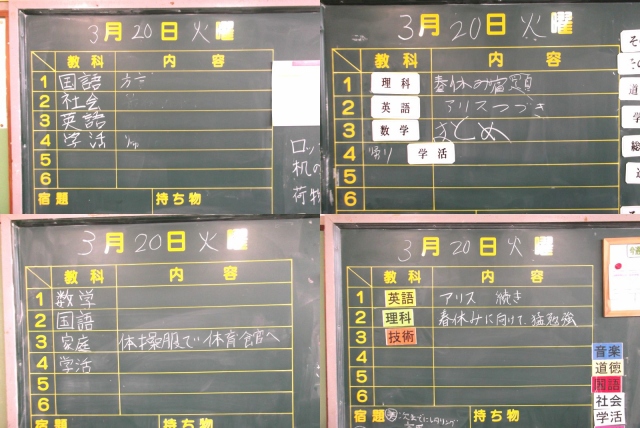 3月20日火曜
教科 内容
1 国語
2 社会
3 英語
4 学活
5
6
宿題 持ち物
ロッ
机の
荷物
3月20日火曜
教科 内容
1 理科 春休みの宿題
2 英語 アリスつづき
3 数学 まとめ
4 帰り 学活
5
6
宿題 持ち物
道
学
総
3月20日火曜
教科 内容
1 数学
2 国語
3 家庭 体操服で体育館へ
4 学活
5
6
宿題 持ち物
3月20日火曜
教科 内容
1 英語 アリス 続き
2 理科 春休みに向けて猛勉強
3 技術
4
5
6
宿題 持ち物
音楽
道徳
国語
社会
学活